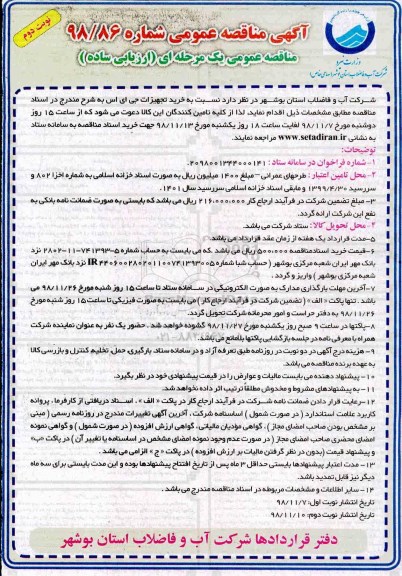 نوبت دوم
آگهی مناقصه عمومی شماره ۹۸/۸۶
مناقصه عمومی یک مرحله ای (ارزیابی ساده))
وزارت نیرو
شرکت آب و فاضلاب استان بوشهر (سهامی خاص)
شرکت آب و فاضلاب استان بوشهر در نظر دارد نسبت به خرید تجهیزات جی ای اس به شرح مندرج در اسناد
مناقصه مطابق مشخصات ذیل اقدام نماید. لذا از کلیه تامین کنندگان این کالا دعوت می شود که از ساعت ۱۵ روز
دوشنبه مورخ ۹۸/۱۱/۷ لغایت ساعت ۱۸ روز یکشنبه مورخ ۹۸/۱۱/۱۳ جهت خرید اسناد مناقصه به سامانه ستاد
به نشانی www.setadiran.ir مراجعه نمایند.
توضیحات:
۱- شماره فراخوان در سامانه ستاد : ۲۰۹۸۰۰۱۳۴۴۰۰۰۱۴۱
۲- محل تامین اعتبار : طرحهای عمرانی – مبلغ ۱۴۰۰ میلیون ریال به صورت اسناد خزانه اسلامی به شماره اخزا ۸۰۲ و
سررسید ۱۳۹۹/۴/۳۰ و مابقی اسناد خزانه اسلامی سررسید سال ۱۴۰۱.
۳- مبلغ تضمین شرکت در فرآیند ارجاع کار ۲۱۶.۰۰۰.۰۰۰ ریال می باشد که بایستی به صورت ضمانت نامه بانکی به
نفع این شرکت ارائه گردد.
۴- محل تحویل کالا: ستاد شرکت می باشد.
۵- مدت قرارداد یک هفته از زمان عقد قرارداد می باشد.
۶- قیمت خرید اسناد مناقصه ۵۰۰.۰۰۰ ریال می باشد که می بایست به حساب شماره ۵-۷۴۱۳۹۳-۱۱-۲۸۰۲ نزد
بانک مهر ایران شعبه مرکزی بوشهر ( حساب شبا شماره IR ۴۴۰۶۰۰۲۸۰۲۰۱۱۰۰۷۴۱۳۹۳۰۰۵ نزد بانک مهر ایران
شعبه مرکزی بوشهر ) واریز و گردد .
۷- آخرین مهلت بارگذاری مدارک به صورت الکترونیکی در سامانه ستاد تا ساعت ۱۵ روز شنبه مورخ ۹۸/۱۱/۲۶ می
باشد. تنها پاکت « الف » ( تضمین شرکت در فرآیند ارجاع کار ) می بایست به صورت فیزیکی تا ساعت ۱۵ روز شنبه مورخ
۹۸/۱۱/۲۶ به دفتر حراست و امور محرمانه شرکت تحویل گردد.
۸- پاکتها در ساعت ۹ صبح روز یکشنبه مورخ ۹۸/۱۱/۲۷ گشوده خواهد شد. حضور یک نفر به عنوان نماینده شرکت
همراه با معرفی نامه در جلسه بازگشایی پاکتها بلامانع می باشد.
۹- هزینه درج آگهی در دو نوبت در روزنامه طبق تعرفه آزاد و در سامانه ستاد، بارگیری، حمل، تخلیه کنترل و بازرسی کالا
به عهده برنده مناقصه می باشد.
۱۰- پیشنهاد دهنده می بایست مالیات و عوارض را در قیمت پیشنهادی خود در نظر بگیرد.
۱۱- به پیشنهادهای مشروط و مخدوش مطلقاً ترتیب اثر داده نخواهد شد.
۱۲- رعایت قرار دادن ضمانت نامه شرکت در فرآیند ارجاع کار در پاکت « الف » ، اسناد دریافتی از کارفرما، پروانه
کاربرد علامت استاندارد ( در صورت شمول ) اساسنامه شرکت، آخرین آگهی تغییرات مندرج در روزنامه رسمی ( مبنی
بر مشخص بودن صاحب امضای مجاز )، گواهی مودیان مالیاتی، گواهی ارزش افزوده ( در صورت شمول ) و گواهی نمونه
امضای محضری صاحب امضای مجاز ( در صورت عدم وجود نمونه امضای مشخص در اساسنامه یا تغییر آن ) در پاکت «ب»
و پیشنهاد قیمت (بدون در نظر گرفتن مالیات بر ارزش افزوده ) در پاکت « ج » الزامی می باشد.
۱۳- مدت اعتبار پیشنهادها بایستی حداقل ۳ ماه پس از تاریخ افتتاح پیشنهادها بوده و این مدت بایستی برای سه ماه
دیگر نیز قابل تمدید باشد.
۱۴- سایر اطلاعات و مشخصات مربوطه در اسناد مناقصه مندرج می باشد .
تاریخ انتشار نوبت اول: ۹۸/۱۱/۷
تاریخ انتشار نوبت دوم: ۹۸/۱۱/۱۰
دفتر قراردادها شرکت آب و فاضلاب استان بوشهر